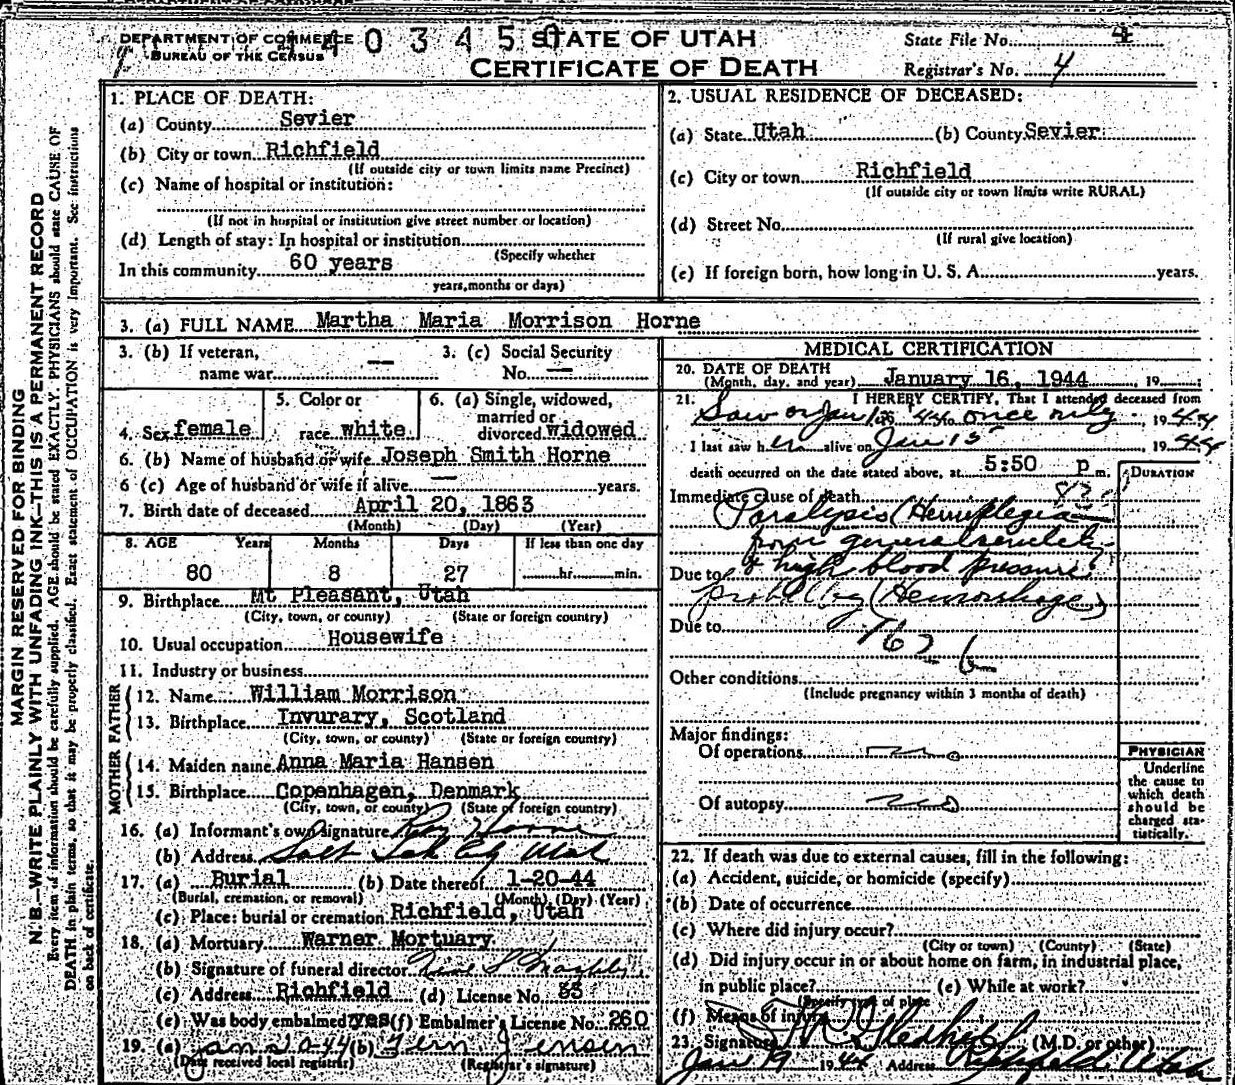 DEPARTMENT OF COMMERCE
BUREAU OF THE CENSUS
440345
STATE OF UTAH
CERTIFICATE OF DEATH
State File No. 4
Registrar's No. 4
MARGIN RESERVED FOR BINDING
N. B.—WRITE PLAINLY WITH UNFADING INK—THIS IS A PERMANENT RECORD
Every item of information should be carefully supplied. AGE should be stated EXACTLY. PHYSICIANS should state CAUSE OF
DEATH in plain terms, so that it may be properly classified. Exact statement of OCCUPATION is very Important. See instructions
on back of certificate.
1. PLACE OF DEATH:
(a) County Sevier
(b) City or town Richfield
(If outside city or town limits name Precinct)
(c) Name of hospital or institution:
(If not in hospital or institution give street number or location)
(d) Length of stay: In hospital or institution
(Specify whether
In this community 60 years
years, months or days)
2. USUAL RESIDENCE OF DECEASED:
(a) State Utah (b) County Sevier
(c) City or town Richfield
(If outside city or town limits write RURAL)
(d) Street No.
(If rural give location)
(e) If foreign born, how long in U. S. A. years.
3. (a) FULL NAME Martha Maria Morrison Horne
3. (b) If veteran, name war —
3. (c) Social Security No. —
4. Sex female
5. Color or race white
6. (a) Single, widowed, married or divorced widowed
6. (b) Name of husband or wife Joseph Smith Horne
6 (c) Age of husband or wife if alive — years.
7. Birth date of deceased April 20, 1863
(Month) (Day) (Year)
8. AGE Years Months Days If less than one day
80 8 27 hr. min.
9. Birthplace Mt Pleasant, Utah
(City, town, or county) (State or foreign country)
10. Usual occupation Housewife
11. Industry or business
FATHER
12. Name William Morrison
13. Birthplace Invurary, Scotland
(City, town, or county) (State or foreign country)
MOTHER
14. Maiden name Anna Maria Hansen
15. Birthplace Copenhagen, Denmark
(City, town, or county) (State or foreign country)
16. (a) Informant's own signature Roy Horne
(b) Address Salt Lake City Utah
17. (a) Burial (b) Date thereof 1-20-44
(Burial, cremation, or removal) (Month) (Day) (Year)
(c) Place: burial or cremation Richfield, Utah
18. (a) Mortuary Warner Mortuary
(b) Signature of funeral director
(c) Address Richfield (d) License No. 33
(e) Was body embalmed? yes (f) Embalmer's License No. 260
19. (a) Jan 20-44 (b) Fern Jensen
(Date received local registrar) (Registrar's signature)
MEDICAL CERTIFICATION
20. DATE OF DEATH
(Month, day, and year) January 16, 1944, 19
21. I HEREBY CERTIFY, That I attended deceased from
Saw on Jan 15 44 once only, 1944
I last saw her alive on Jan 15 1944
death occurred on the date stated above, at 5:50 p m.
DURATION
Immediate cause of death
Paralysis (Hemiplegia
from general senility
Due to & high blood pressure
probably (Hemorrhage)
Due to
Other conditions
(Include pregnancy within 3 months of death)
Major findings:
Of operations no
Of autopsy no
PHYSICIAN
Underline
the cause to
which death
should be
charged sta-
tistically.
22. If death was due to external causes, fill in the following:
(a) Accident, suicide, or homicide (specify)
(b) Date of occurrence
(c) Where did injury occur?
(City or town) (County) (State)
(d) Did injury occur in or about home on farm, in industrial place,
in public place? (e) While at work?
(Specify type of place
(f) Means of injury
23. Signature (M.D. or other)
Jan 19 1944 Address Richfield, Utah